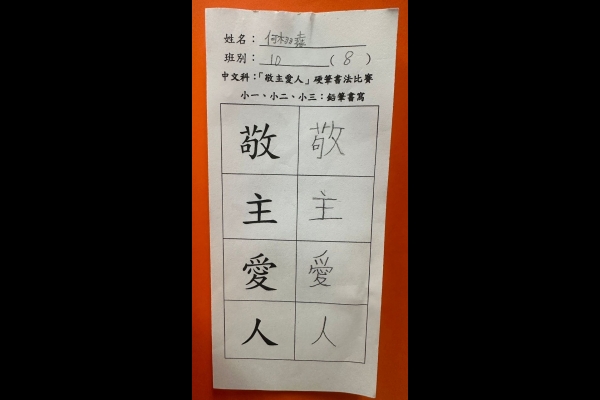 姓名：何栩森
班別：1D （8）
中文科：「敬主愛人」硬筆書法比賽
小一、小二、小三：鉛筆書寫
敬 敬
主 主
愛 愛
人 人